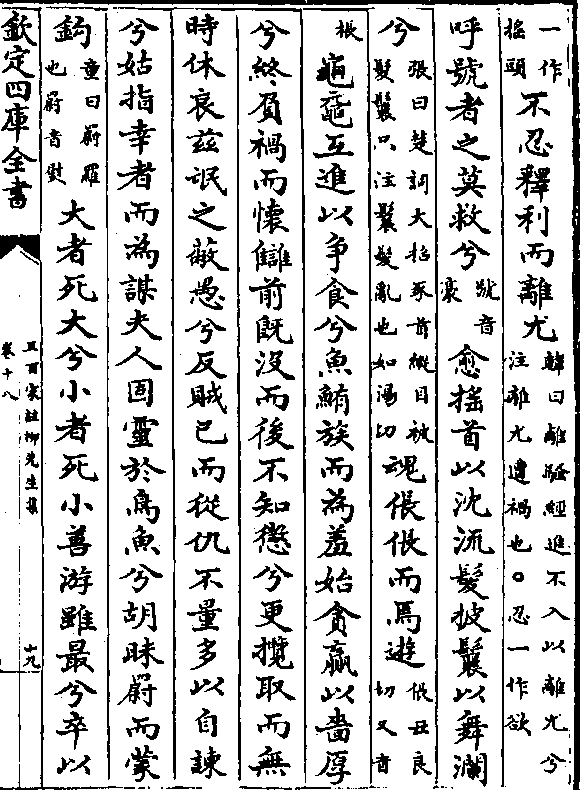 一作搖頭不忍釋利而離尤韓曰離騷經進不入以離尤兮注離尤遭禍也○忍一作欲
呼號者之莫救兮號音豪愈搖首以沈流髮披鬤以舞瀾
兮張曰楚詞大招豕首縱目被髮鬤只注鬤髮亂也如湯切魂倀倀而焉遊倀丑良切又音
棖龜黿互進以争食兮魚鮪族而為羞始貪贏以嗇厚
兮終負禍而懷讎前既没而後不知懲兮更攬取而無
時休哀兹氓之蔽愚兮反賊已而從仇不量多以自諫
兮姑指幸者而為謀夫人固靈於鳥魚兮胡昧罻而蒙
鈎童曰罻羅也罻音慰大者死大兮小者死小善游雖最兮卒以
欽定四庫全書
五百家註柳先生集
卷十八
十九